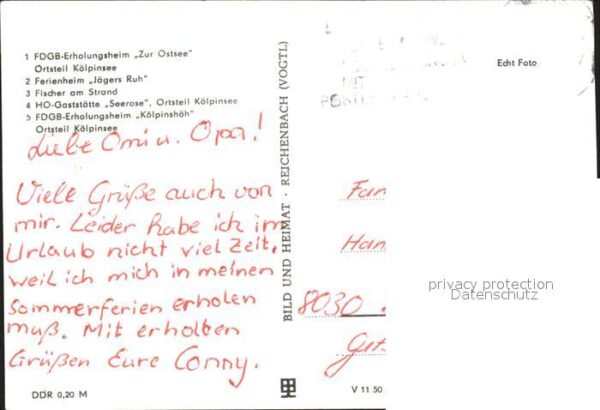 1 FDGB-Erholungsheim „Zur Ostsee"
Ortsteil Kölpinsee
2 Ferienheim „Jägers Ruh"
3 Fischer am Strand
4 HO-Gaststätte „Seerose", Ortsteil Kölpinsee
5 FDGB-Erholungsheim „Kölpinshöh"
Ortsteil Kölpinsee
Liebe Omi u. Opa!
Viele Grüße auch von
mir. Leider habe ich im
Urlaub nicht viel Zeit,
weil ich mich in meinen
Sommerferien erholen
muß. Mit erholten
Grüßen Eure Conny.
DDR 0,20 M
BILD UND HEIMAT · REICHENBACH (VOGTL)
Echt Foto
Fam
Han
8030
V 11 50
privacy protection
Datenschutz